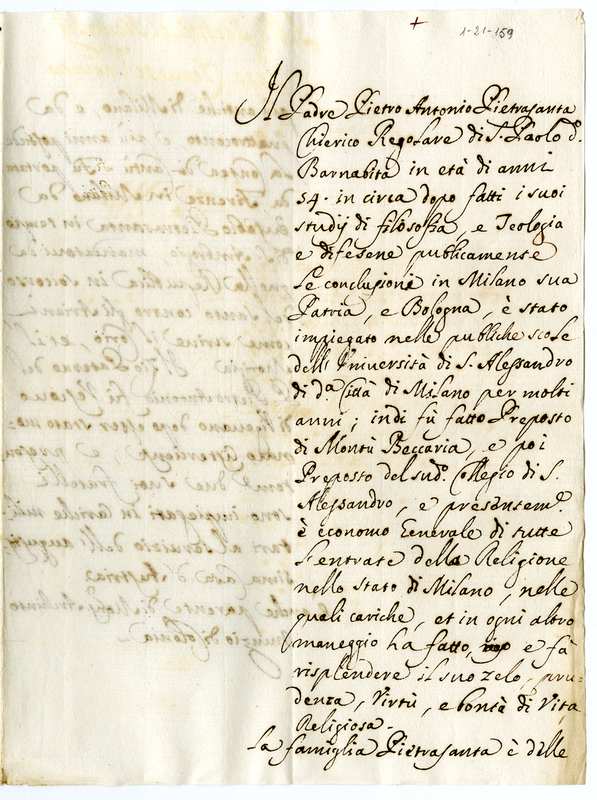 +
1-21-159
Il Padre Pietro Antonio Pietrasanta
Chierico Regolare di S. Paolo d.º
Barnabita in età di anni
54. in circa dopo fatti i suoi
studij di filosofia, e Teologia
e difesene publicamente
Le conclusioni in Milano sua
Patria, e Bologna, è stato
impiegato nelle publiche scole
dell'Università di S. Alessandro
di d.ª Città di Milano per molti
anni; indi fù fatto Preposto
di Montù Beccaria, e poi
Preposto del sud.º Collegio di S.
Alessandro, e presentem.e
è economo Generale di tutte
L'entrate della Religione
nello stato di Milano, nelle
quali cariche, et in ogni altro
maneggio ha fatto, e fà
risplendere il suo zelo, pru=
denza, Virtù, e bontà di Vita
Religiosa.
La famiglia Pietrasanta è delle